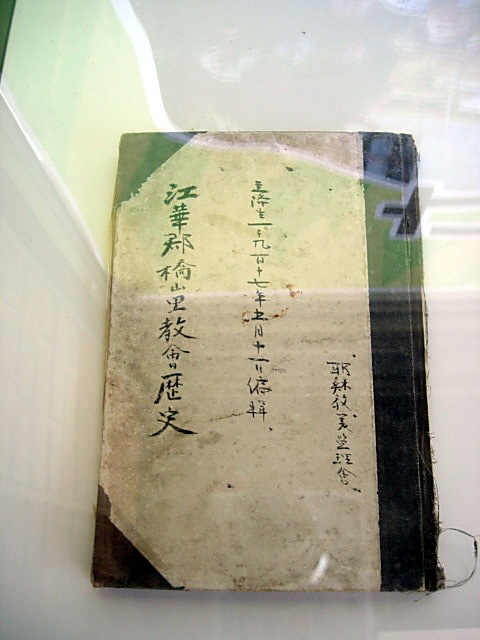 耶穌教美監理會
主降生一千九百十七年五月十一日編輯
江華郡橋山里教會歷史